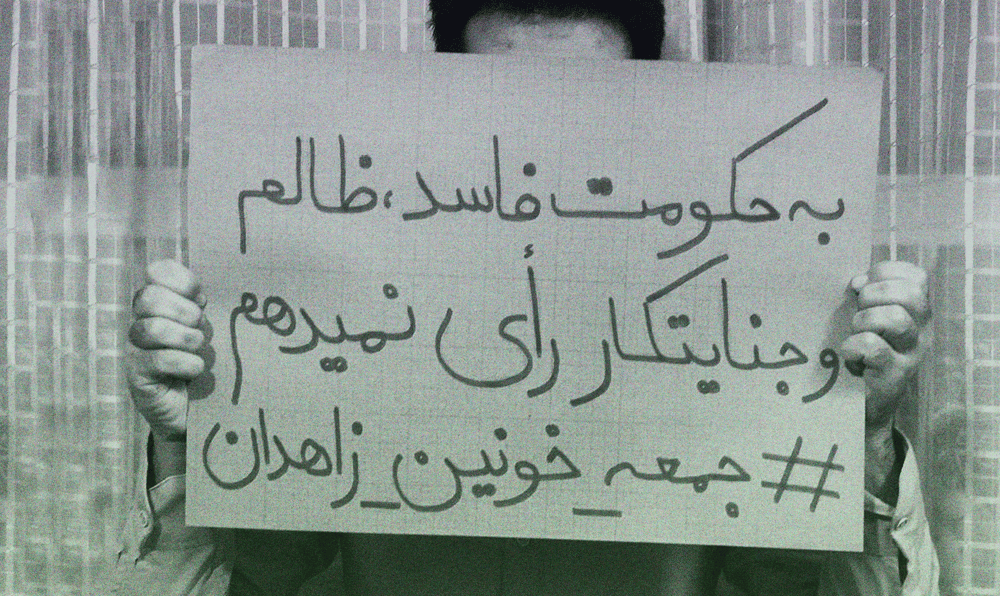 به حکومت فاسد، ظالم
و جنایتکار رأی نمیدهم
#جمعه_خونین_زاهدان